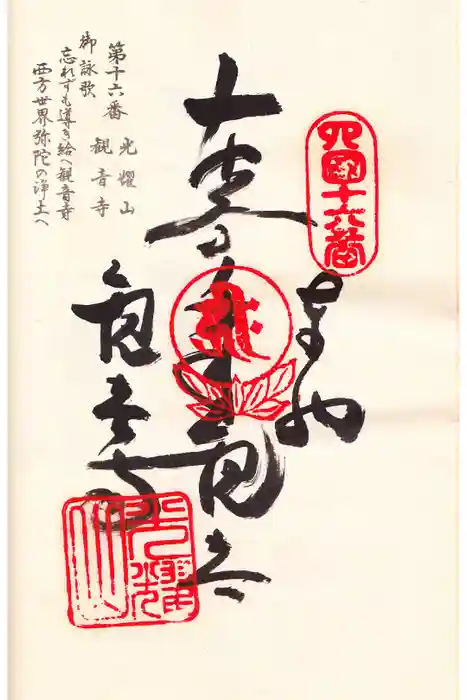 四國十六番
奉納
観音寺
第十六番 光耀山 観音寺
御詠歌
忘れずも導き給へ観音寺
西方世界弥陀の浄土へ